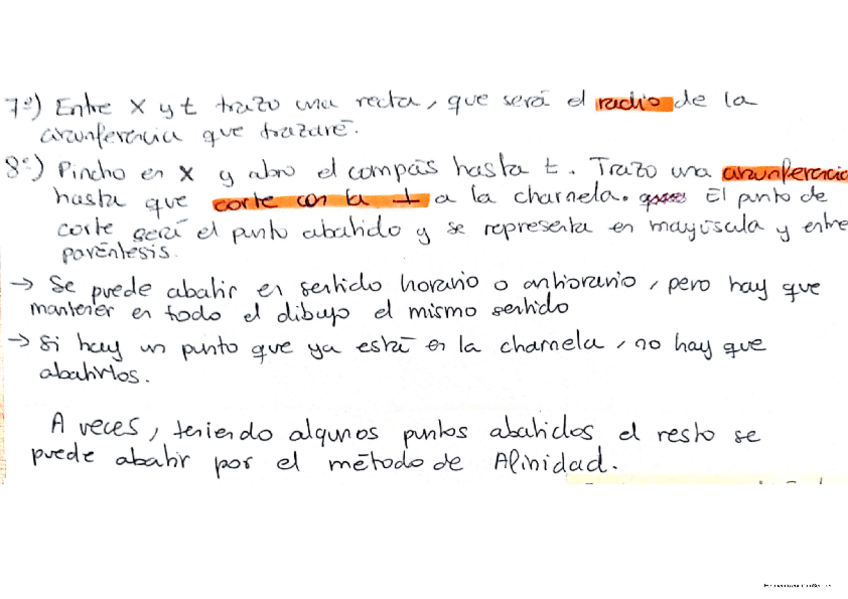 7º) Entre X y t trazo una recta, que será el radio de la
circunferencia que trazaré.
8º) Pincho en X y abro el compás hasta t. Trazo una circunferencia
hasta que corte con la ⊥ a la charnela. El punto de
corte será el punto abatido y se representa en mayúscula y entre
paréntesis.
→ Se puede abatir en sentido horario o antihorario, pero hay que
mantener en todo el dibujo el mismo sentido
→ Si hay un punto que ya está en la charnela, no hay que
abatirlos.
A veces, teniendo algunos puntos abatidos el resto se
puede abatir por el método de Afinidad.